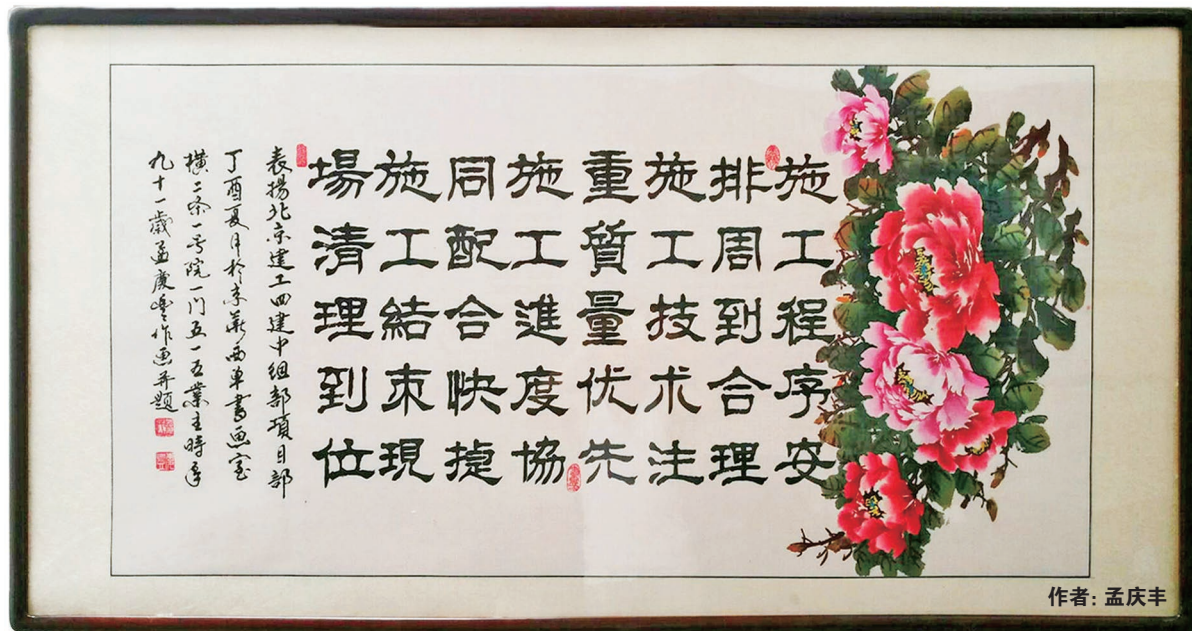 施工程序安
排周到合理
施工技术注
重質量优先
施工進度協
同配合快捷
施工結束現
場清理到位
表揚北京建工四建中組部項目部
丁酉夏月於京華西單書画室
橫二条一号院一门五一五業主時年
九十一歲孟慶豐作画并題
作者：孟庆丰